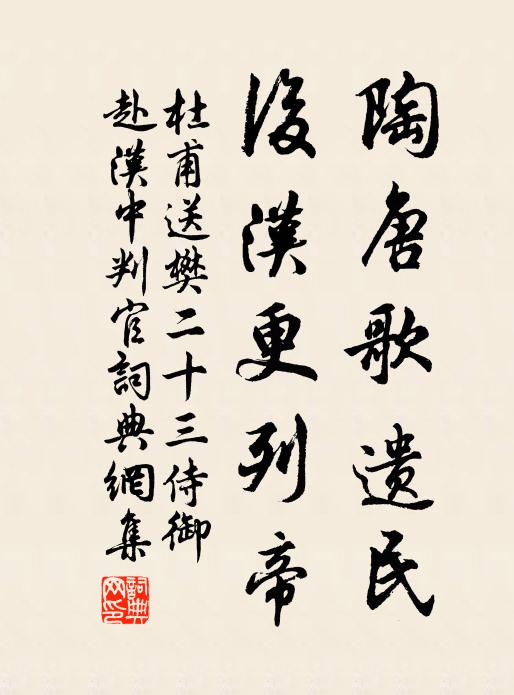 陶唐歌遺民
後漢更列帝
杜甫送樊二十三侍御
赴漢中判官詞典網集
詞典網印